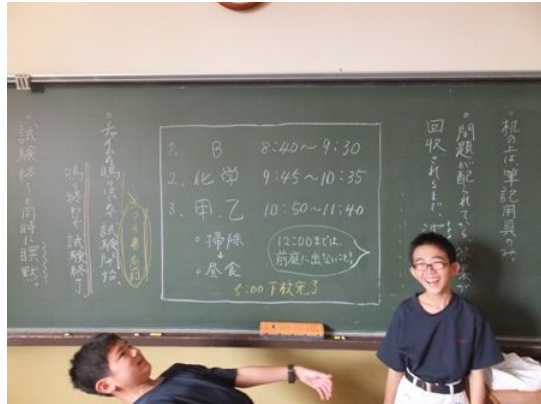 ◦机の上は、筆記用具のみ。
◦問題が配られている。答案が
回収されるまで、
1. B 8:40〜9:30
2. 化学 9:45〜10:35
3. 甲、乙 10:50〜11:40
◦掃除
↓
◦昼食
12:00までは
前庭に出ないこと!
5:00 下校完了
試験開始、
鳴り終わりで、試験終了。
◦試験終了と同時に瞑黙。